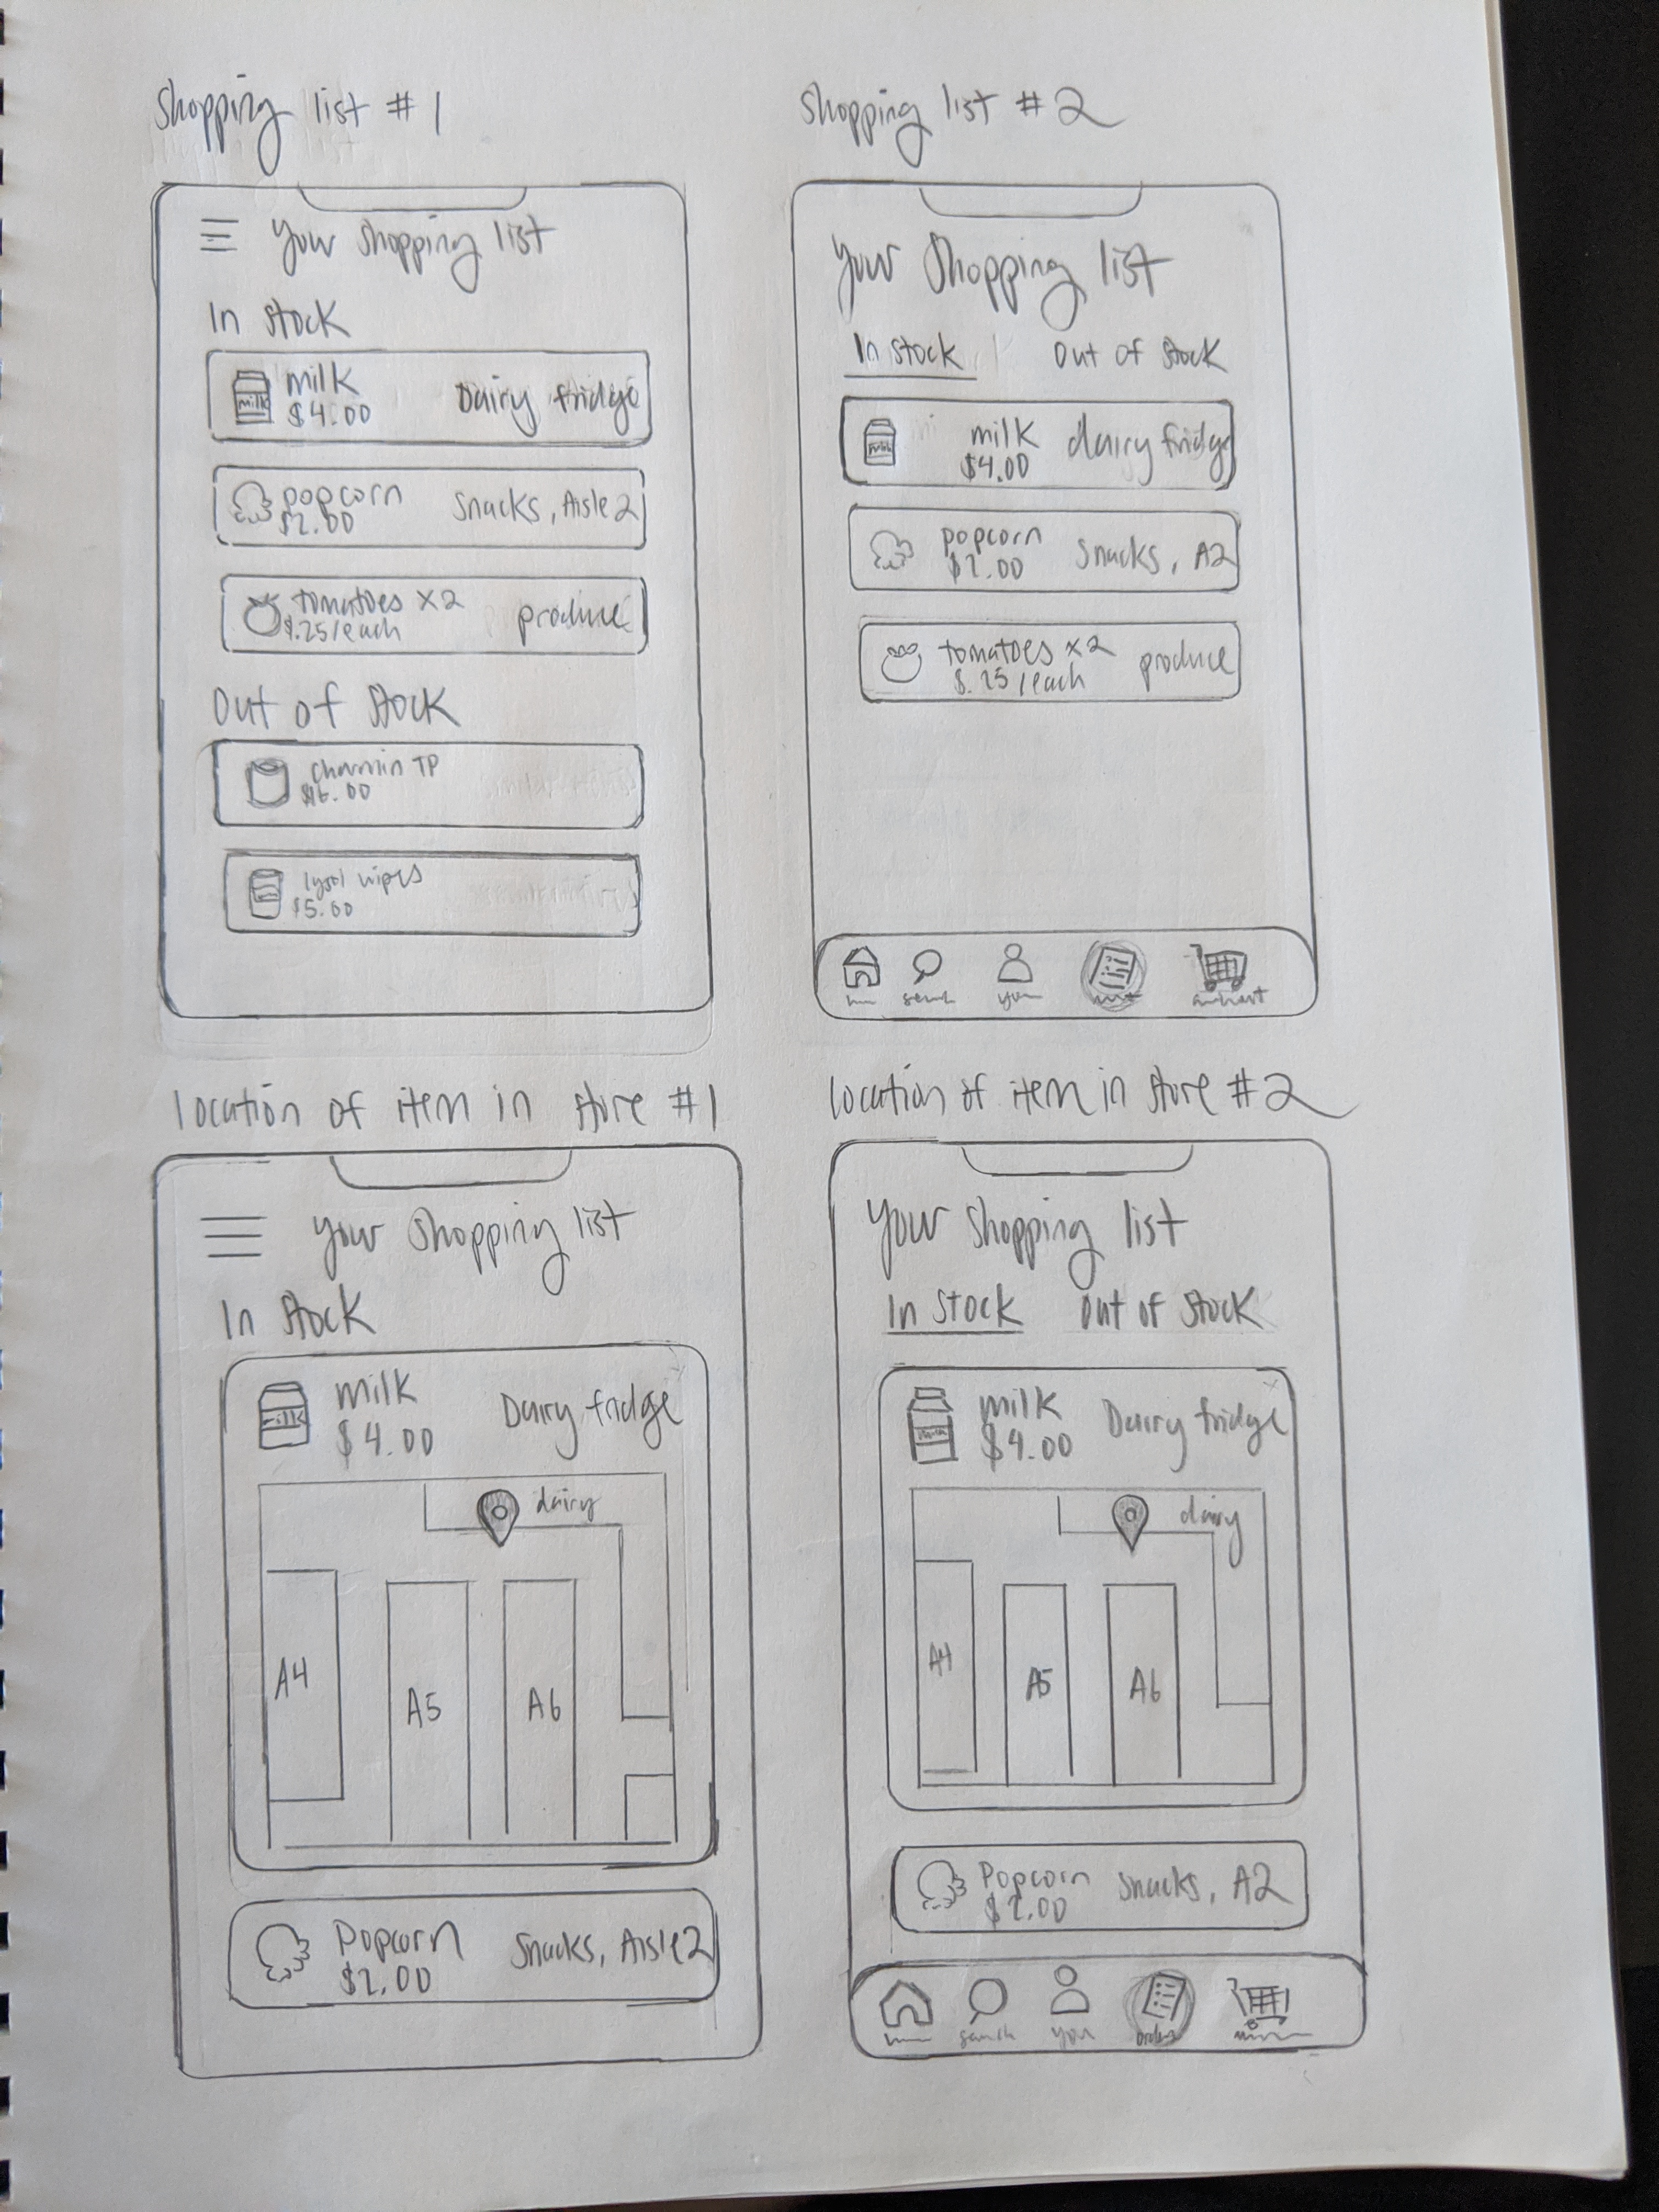 Shopping list #1
Your Shopping list
In Stock
milk
$4.00
Dairy fridge
milk
popcorn
$2.00
Snacks, Aisle 2
tomatoes x2
$.25/each
produce
Out of Stock
Charmin TP
$16.00
lysol wipes
$5.00
Shopping list #2
Your Shopping list
In Stock
Out of Stock
milk
$4.00
dairy fridge
milk
popcorn
$2.00
Snacks, A2
tomatoes x2
$.25/each
produce
search
you
Location of item in store #1
Your Shopping list
In Stock
milk
$4.00
Dairy fridge
milk
dairy
A4
A5
A6
Popcorn
$2.00
Snacks, Aisle 2
Location of item in store #2
Your Shopping list
In Stock
Out of Stock
milk
$4.00
Dairy fridge
milk
dairy
A4
A5
A6
Popcorn
$2.00
Snacks, A2
search
you
orders